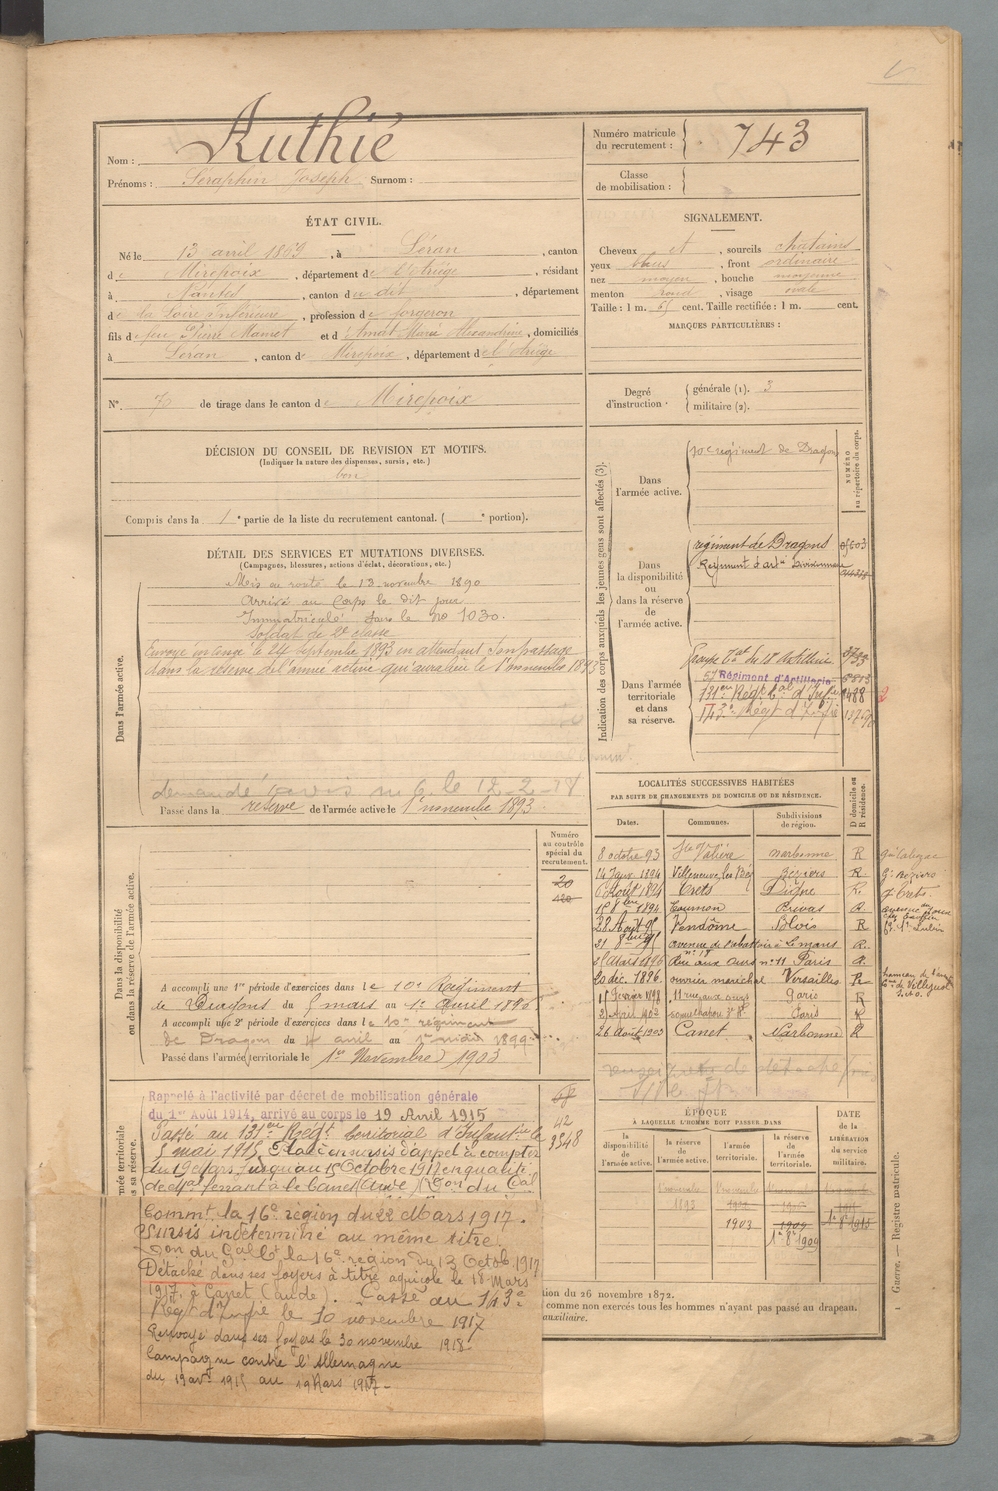 Nom : Authié
Prénoms : Séraphin Joseph Surnom :
Numéro matricule du recrutement : 743
Classe de mobilisation :
ÉTAT CIVIL.
Né le 13 avril 1869, à Léran, canton
de Mirepoix, département de l'Ariège, résidant
à Nantes, canton du dit, département
de la Loire Inférieure, profession de forgeron
fils de feu Pierre Mamet et d'Amat Marie Alexandrine, domiciliés
à Léran, canton de Mirepoix, département de l'Ariège
N° 7 de tirage dans le canton de Mirepoix
SIGNALEMENT.
Cheveux et, sourcils chatains
yeux bleus, front ordinaire
nez moyen, bouche moyenne
menton rond, visage ovale
Taille : 1 m. 65 cent. Taille rectifiée : 1 m. cent.
MARQUES PARTICULIÈRES :
Degré d'instruction. générale (1). 3
militaire (2).
DÉCISION DU CONSEIL DE REVISION ET MOTIFS.
(Indiquer la nature des dispenses, sursis, etc.)
bon
Compris dans la 1e partie de la liste du recrutement cantonal. ( e portion).
DÉTAIL DES SERVICES ET MUTATIONS DIVERSES.
(Campagnes, blessures, actions d'éclat, décorations, etc.)
Dans l'armée active.
Mis en route le 13 novembre 1890
Arrivé au Corps le dit jour
Immatriculé sous le No 1030.
Soldat de 2e classe
Envoyé en congé le 24 septembre 1893 en attendant son passage
dans la réserve de l'armée active qui aura lieu le 1er novembre 1893
demande le 12-2-18
Passé dans la réserve de l'armée active le 1er novembre 1893
Indication des corps auxquels les jeunes gens sont affectés (3).
NUMÉRO au répertoire du corps.
Dans l'armée active.
10e régiment de Dragons
Dans la disponibilité ou dans la réserve de l'armée active.
régiment de Dragons
Régiment d'artie Divisionnaire
Dans l'armée territoriale et dans sa réserve.
Groupe Tal du 18e Artillerie
57 Régiment d'Artillerie
131e Régt Tal d'Infie 1488 2
143e Régt d'Infie
LOCALITÉS SUCCESSIVES HABITÉES
PAR SUITE DE CHANGEMENTS DE DOMICILE OU DE RÉSIDENCE.
Dates. Communes. Subdivisions de région. D domicile ou R résidence.
8 octobre 93 Ste Valière Narbonne R
14 Janv 1894 Villeneuve les Béz Béziers R
6 Août 1894 Trets Digne R.
15 8bre 1894 Tournon Privas R.
28 Août 95 Vendôme Blois R
21 8bre 95 avenue de l'abattoir à Le mans R.
25 Mars 1896 Rue aux Ours no 11 Paris R
20 déc. 1896 ouvrier maréchal Versailles R
15 février 1898 11 rue aux ours Paris R
2 Avril 1902 Paris R
26 août 1903 Canet Narbonne R
Dans la disponibilité ou dans la réserve de l'armée active.
Numéro au contrôle spécial du recrutement.
20
A accompli une 1re période d'exercices dans le 10e Régiment
de Dragons du 5 mars au 1er Avril 1896
A accompli une 2e période d'exercices dans le 10e régiment
de Dragons du 4 avril au 1er mai 1899
Passé dans l'armée territoriale le 1er Novembre 1903
Rappelé à l'activité par décret de mobilisation générale
du 1er Août 1914, arrivé au corps le 19 Avril 1915
Passé au 131e Régt territorial d'Infanterie le
5 mai 1915. Placé en sursis d'appel à compter
du 19 Mars jusqu'au 15 Octobre 1917 en qualité
de Mal ferrant à le Canet (Aude) Don du Gal
Commt la 16e région du 22 Mars 1917.
Sursis indéterminé au même titre
Don du Gal Ct la 16e région du 13 Octob 1917
Détaché dans ses foyers à titre agricole le 18 Mars
1917, à Canet (Aude). Passé au 143e
Régt d'Infie le 10 novembre 1917
Renvoyé dans ses foyers le 30 novembre 1918
Campagne contre l'Allemagne
du 19 avril 1915 au 19 Mars 1917-
42
9348
ÉPOQUE
À LAQUELLE L'HOMME DOIT PASSER DANS
la disponibilité de l'armée active.
la réserve de l'armée active.
l'armée territoriale.
la réserve de l'armée territoriale.
DATE de la LIBÉRATION du service militaire.
1893
1903
1909
tion du 26 novembre 1872.
comme non exercés tous les hommes n'ayant pas passé au drapeau.
auxiliaire.
1 Guerre. — Registre matricule.